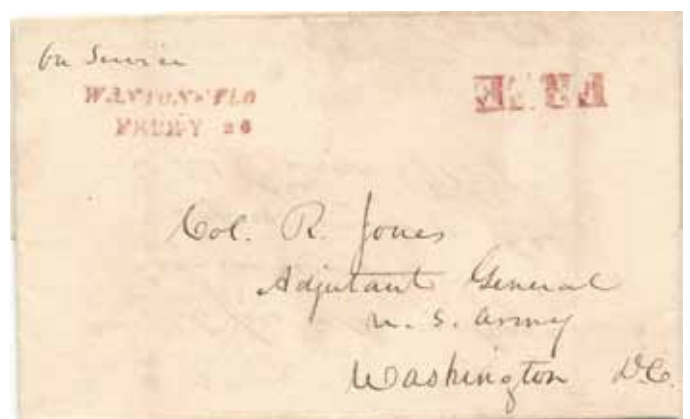 On Service
WANTON FLO
FEBRY 26
FREE
Col. R. Jones
Adjutant General
U. S. Army
Washington D.C.